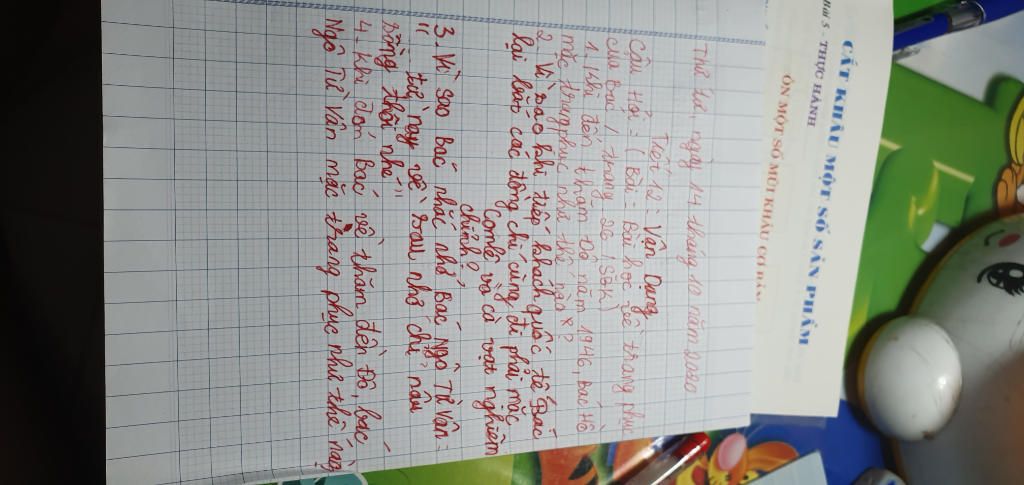 Bài 5 - THỰC HÀNH
CẮT KHÂU MỘT SỐ SẢN PHẨM
ÔN MỘT SỐ MŨI KHÂU CƠ BẢN
Thứ tư, ngày 14 tháng 10 năm 2020
Tiết 12: Vận Dụng
Câu hỏi: (Bài: Bài học về trang phục
của Bác / trang 26 / SGK)
1. Khi đến thăm đền Đô năm 1946, Bác Hồ
mặc trang phục như thế nào?
2. Vì sao khi tiếp khách quốc tế Bác
lại bảo các đồng chí cùng đi phải mặc
Comlê và cà vạt nghiêm
chỉnh?
3. Vì sao Bác nhắc nhở Bác Ngô Tử Vân:
"từ nay về sau nhớ chỉ nâu
sồng thôi nhé"
4. Khi đón Bác về thăm đền Đô, bác
Ngô Tử Vân mặc trang phục như thế nào